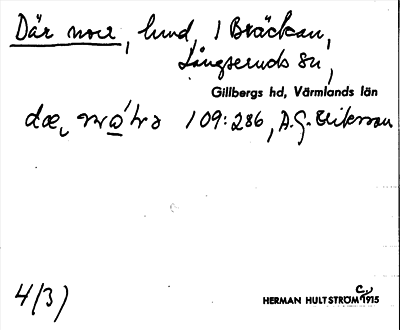 Där norr, lund, 1 Bräckan,
Långseruds sn,
Gillbergs hd, Värmlands län
109:286, A.G. Erikson
4/3)
HERMAN HULTSTRÖM 1915